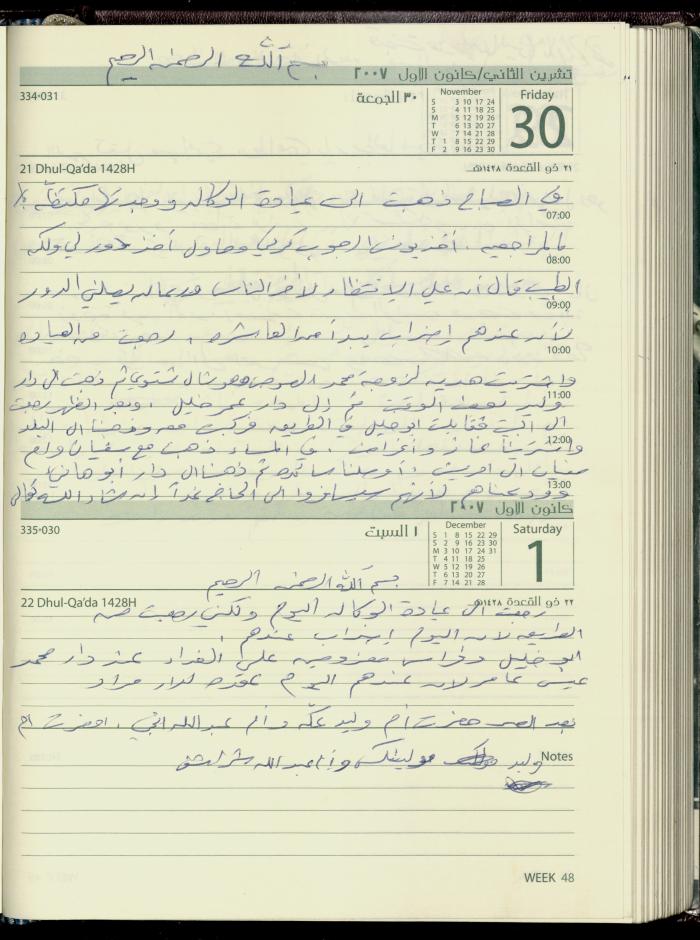 بسم الله الرحمن الرحيم
تشرين الثاني/كانون الاول ٢٠٠٧
334-031
٣٠ الجمعة
November
S 3 10 17 24
S 4 11 18 25
M 5 12 19 26
T 6 13 20 27
W 7 14 21 28
T 1 8 15 22 29
F 2 9 16 23 30
Friday
30
21 Dhul-Qa'da 1428H
٢١ ذو القعدة ١٤٢٨هـ
في الصباح ذهبت الى عيادة الوكاله ووجدتها مكتظة
07:00
بالمراجعين . أخذ يونس الرجوب كرتي وحاول أخذ دور لي ولكن
08:00
الطبيب قال أن علي الانتظار لآخر الناس وربما لا يصلني الدور
09:00
لأن عندهم إضراب يبدأ من العاشره . رجعت من العياده
10:00
واشتريت هديه لزوجة محمد وهو شال شتوي ثم ذهبت الى دار
11:00
وليد نصف الوقت ثم الى دار عمر خليل . وبعد الظهر رجعت
الى البيت فقابلت ابو خليل في الطريق فركبت معه وذهبنا الى البلد
12:00
واشترينا غاز وأغراض . في المساء ذهبت مع سفيان وام
سفيان الى ثم ذهبنا الى دار أبو هاني
13:00
وودعناهم لأنهم سيسافروا الى الحج غداً ان شاء الله تعالى
كانون الاول ٢٠٠٧
335-030
١ السبت
December
S 1 8 15 22 29
S 2 9 16 23 30
M 3 10 17 24 31
T 4 11 18 25
W 5 12 19 26
T 6 13 20 27
F 7 14 21 28
Saturday
1
بسم الله الرحمن الرحيم
22 Dhul-Qa'da 1428H
٢٢ ذو القعدة ١٤٢٨هـ
ذهبت الى عيادة الوكاله اليوم ولكني رجعت من
الطريق لأن اليوم إضراب عندهم .
ابو خليل وفراس معزومين على الغداء عند دار محمد
عيش عامر لأن عندهم اليوم عقد لدار مراد
بعد العصر حضرت أم وليد عكّه وأم عبدالله . احضرت ام
Notes
وليد وأم عبدالله
WEEK 48